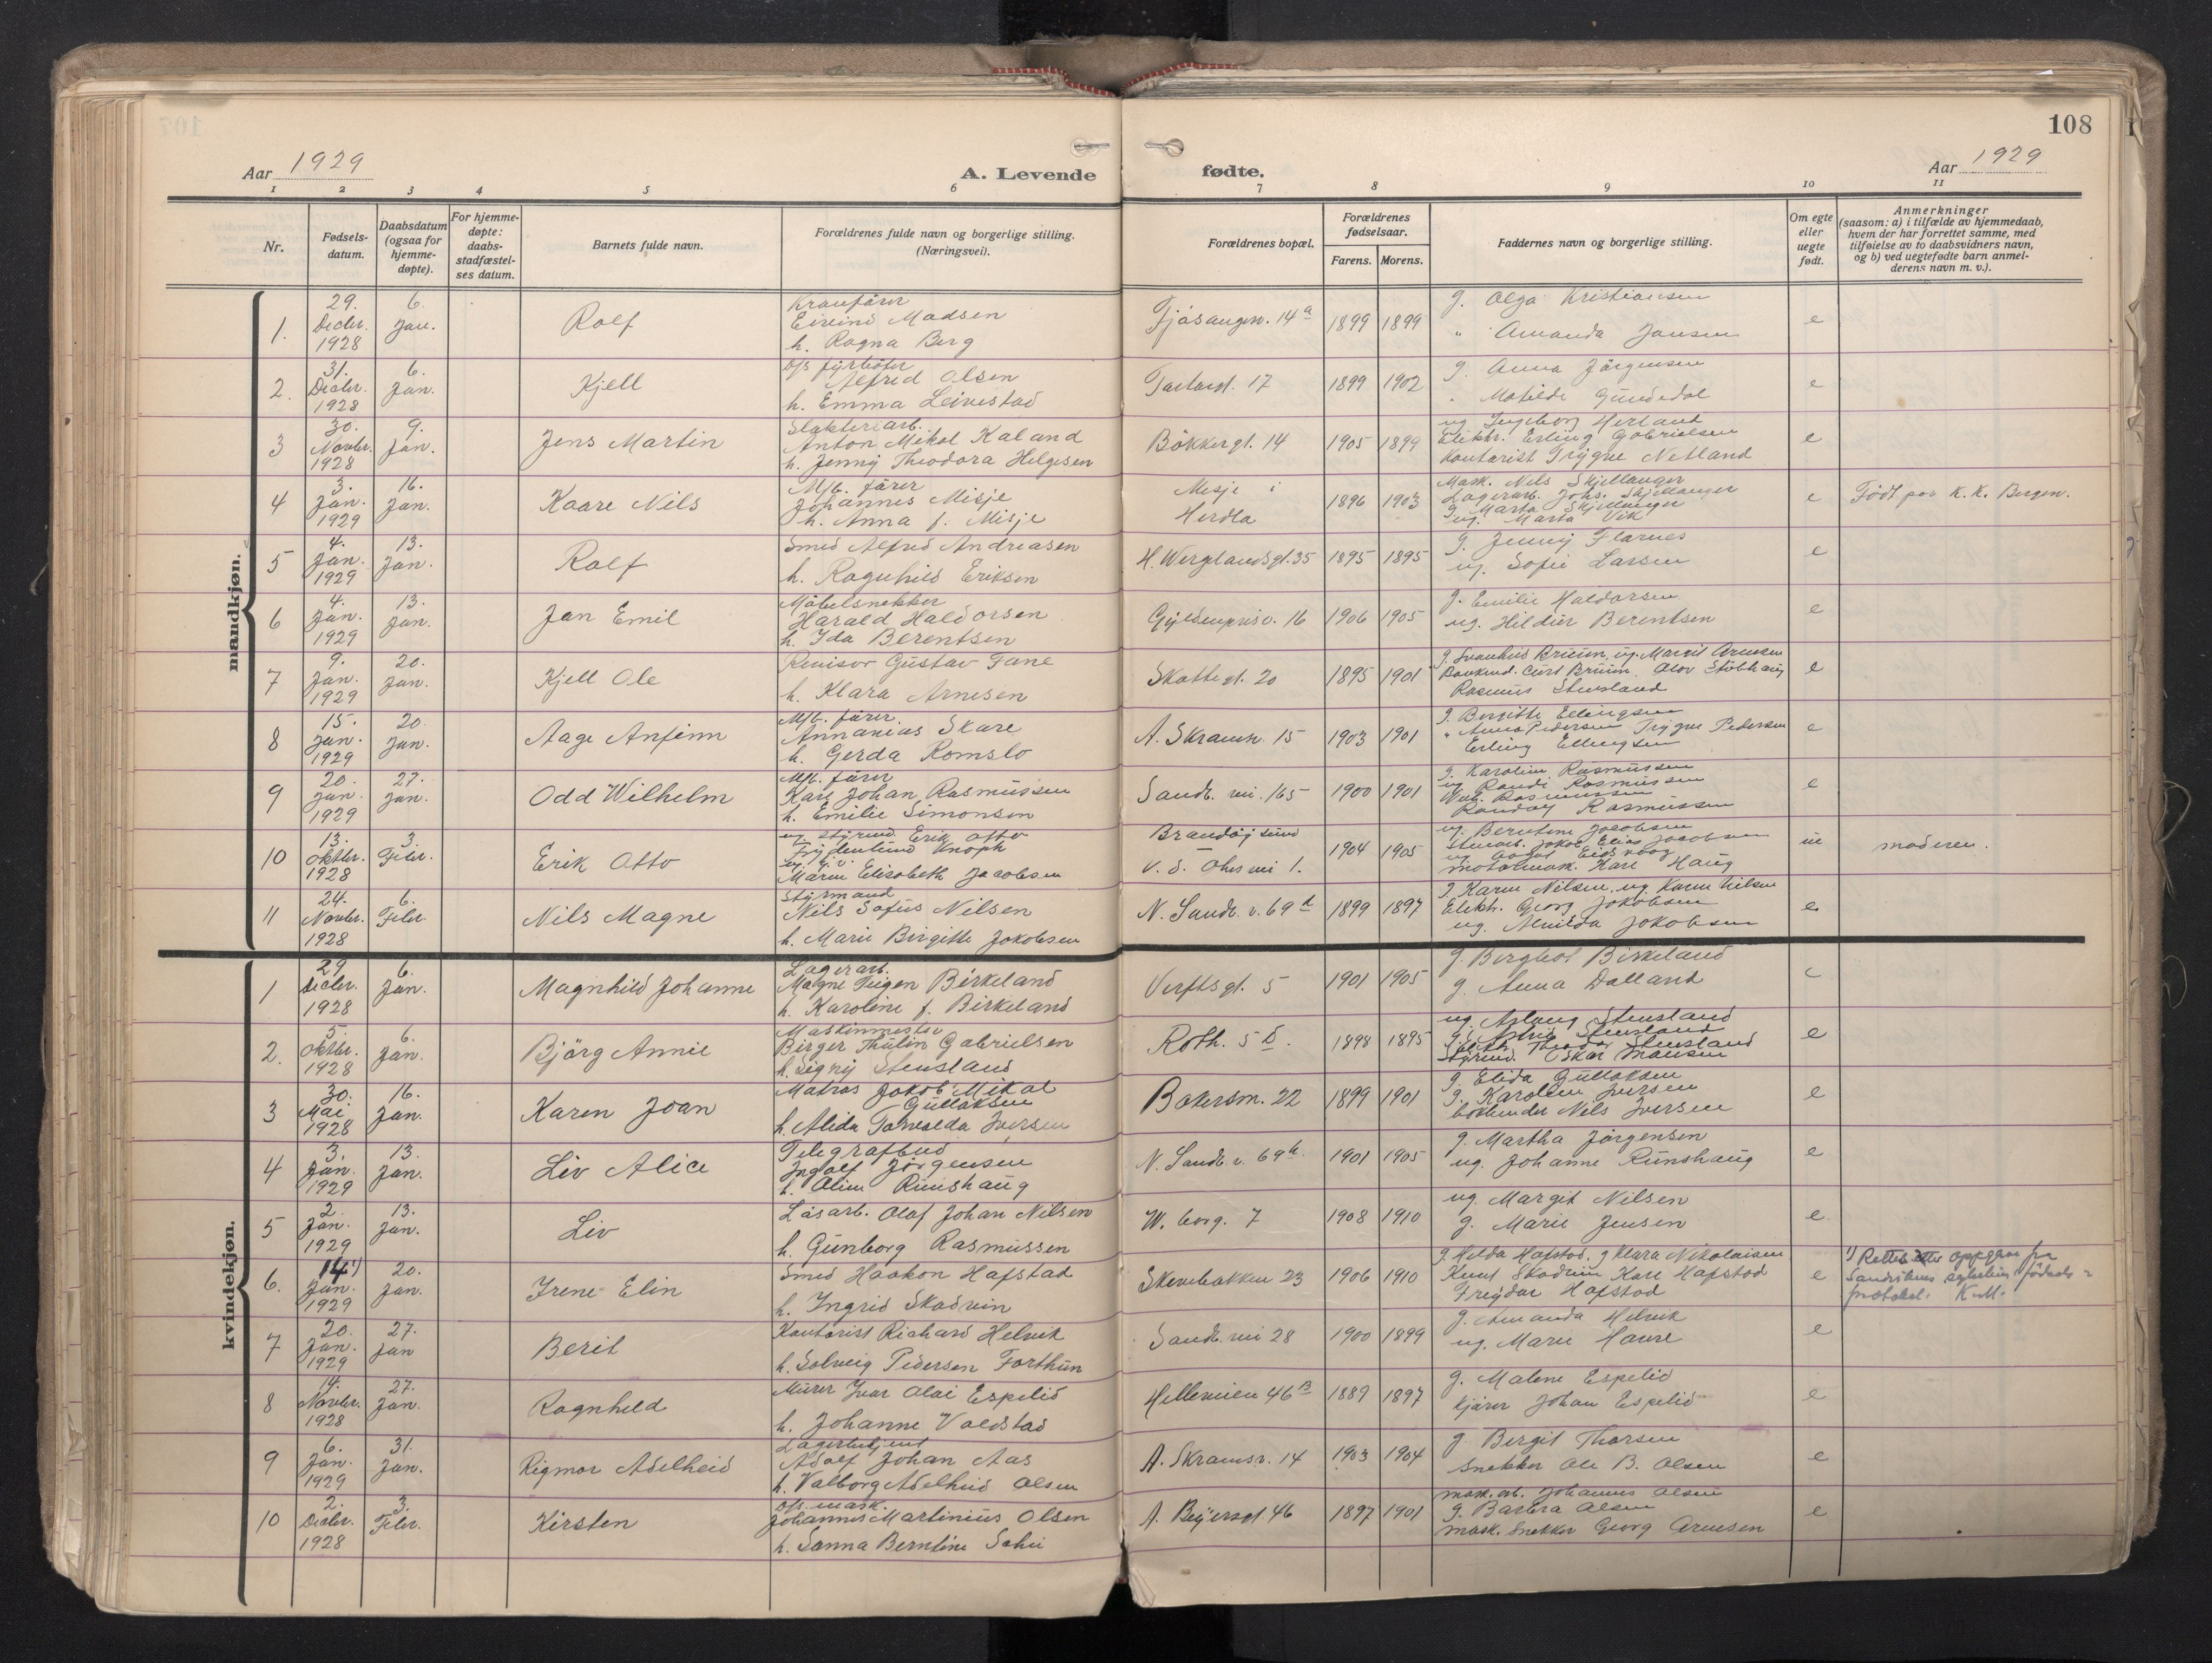 108
Aar 1929
A. Levende fødte.
Aar 1929
1 2 3 4 5 6 7 8 9 10 11
Nr.
Fødsels-datum.
Daabsdatum (ogsaa for hjemme-døpte).
For hjemme-døpte: daabs-stadfæstel-ses datum.
Barnets fulde navn.
Forældrenes fulde navn og borgerlige stilling. (Næringsvei).
Forældrenes bopæl.
Forældrenes fødselsaar.
Farens. Morens.
Faddernes navn og borgerlige stilling.
Om egte eller uegte født.
Anmerkninger
(saasom: a) i tilfælde av hjemmedaab,
hvem der har forrettet samme, med
tilføielse av to daabsvidners navn,
og b) ved uegtefødte barn anmel-
derens navn m. v.).
mandkjøn.
1. 29. Decbr. 1928 6. Jan. Rolf
Eivind Madsen
h. Ragna Berg
14a 1899 1899
g. Olga Kristiansen
" Amanda Jansen
e
2. 31. Decbr. 1928 6. Jan. Kjell
Alfred Olsen
h. Emma Leivestad
17 1899 1902
g. Anna Jörgensen
e
3 30. Novbr. 1928 9. Jan. Jens Martin
Slakteriarb.
Anton Mikal Kaland
h. Jenny Theodora Helgesen
Bökkergt. 14 1905 1899
ug. Ingeborg Herland
Elektr. Erling Gabrielsen
Kontorist Trygve Netland
e
4 3. Jan. 1929 16. Jan. Kaare Nils
M/b. förer
Johannes Misje
h. Anna f. Misje
Misje i Herdla 1896 1903
Mask. Nils Skjellanger
Lagerarb. Johs. Skjellanger
g. Marta Skjellanger
ug. Marta Vik
e
Födt paa K. K. Bergen.
5 4. Jan. 1929 13. Jan. Rolf
Smed Alfred Andreasen
h. Ragnhild Eriksen
H. Werglandsgt. 35 1895 1895
g. Jenny Flarnes
ug. Sofie Larsen
e
6 4. Jan. 1929 13. Jan. Jan Emil
Möbelsnekker
Harald Haldorsen
h. Ida Berentsen
Gyldenprisv. 16 1906 1905
g. Emilie Haldorsen
ug. Hildur Berentsen
e
7 9. Jan. 1929 20. Jan. Kjell Ole
Revisor Gustav Fane
h. Klara Arnesen
Skottegt. 20 1895 1901
g. Svanhild Bruun, ug. Margit Arnesen
Rasmus Stensland
e
8 15. Jan. 1929 20. Jan. Aage Anfinn
M/b. förer.
Annanias Skare
h. Gerda Romslo
A. Skramsv. 15 1903 1901
g. Bergitte Ellingsen
" Anna Pedersen Trygve Pedersen
Erling Ellingsen
e
9 20. Jan. 1929 27. Jan. Odd Wilhelm
M/b. förer
Karl Johan Rasmussen
h. Emilie Simonsen
Sandv. vei. 165 1900 1901
g. Karoline Rasmussen
ug. Randi Rasmussen
e
10 13. Oktbr. 1928 3. Febr. Erik Otto
ug. Styrmd. Erik Otto
Knoph
Marie Elisabeth Jacobsen
Brandøysund 1904 1905
ug. Berntine Jacobsen
motormask. Karl Haug
ue
moderen.
11 24. Novbr. 1928 6. Febr. Nils Magne
Styrmand
Nils Sofus Nilsen
h. Marie Birgitte Jokobsen
N. Sandv. v. 69 1899 1897
g. Karen Nilsen, ug. Karen Nilsen
Elektr. Georg Jokobsen
ug. Alvilda Jokobsen
e
kvindekjøn.
1 29 Decbr. 1928 6. Jan. Magnhild Johanne
Lagerarb.
Magne Teigen Birkeland
h. Karoline f. Birkeland
Verftsgt. 5 1901 1905
g. Bergliot Birkeland
g. Anna Dalland
e
2. 5. Oktbr. 1928 6. Jan. Björg Annie
Maskinmester
Birger Thulin Gabrielsen
h. Signy Stensland
1898 1895
ug. Aslaug Stensland
g. Astrid Stensland
Elektr. Theodor Stensland
Styrmd. Oskar Hansen
e
3 30. Mai 1928 16. Jan. Karen Joan
Matros Jakob Mikal
Gullaksen
h. Alida Iversen
22 1899 1901
g. Elida Gullaksen
g. Karoline Iversen
bokbinder Nils Iversen
e
4 3. Jan. 1929 13. Jan. Liv Alice
Telegrafbud
Ingolf Jörgensen
h. Oline Runshaug
N. Sandv. v. 69 1901 1905
g. Martha Jörgensen
ug. Johanne Runshaug
e
5 2. Jan. 1929 13. Jan. Liv
Lösarb. Olaf Johan Nilsen
h. Gunborg Rasmussen
W. borg. 7 1908 1910
ug. Margit Nilsen
g. Marie Jensen
e
6. 14 1) Jan. 1929 20. Jan. Irene Elin
Smed Haakon Hafstad
h. Ingrid Skodvin
Skivebakken 23 1906 1910
g. Helda Hafstad, g. Klara Nikolaisen
Knut Skodvin Karl Hafstad
Hafstad
e
1) Rettet efter opgave fra
Sandvikens födsels-
protokol.
7 20. Jan. 1929 27. Jan Berit
Kontorist Richard Helvik
h. Solveig Pedersen Forthun
Sandv. vei 28 1900 1899
g. Amanda Helvik
ug. Marie
e
8 14. Novbr. 1928 27. Jan. Ragnhild
Murer Ivar Olai Espelid
h. Johanne Valdstad
Helleveien 46B 1889 1897
g. Malene Espelid
kjörer Johan Espelid
e
9 6. Jan. 1929 31. Jan. Rigmor Adelheid
Lagerbetjent
Adolf Johan Aas
h. Valborg Adelheid Olsen
A. Skramsv. 14 1903 1904
g. Bergit Thorsen
Snekker Ole B. Olsen
e
10 2. Decbr. 1928 3. Febr. Kirsten
Johannes Martinius Olsen
h. Sanna Berntine
46 1897 1901
mask. arb. Johannes Olsen
g. Barbra Olsen
mask. Snekker Georg Arnesen
e